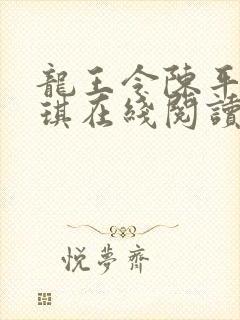 龍王令陳平
琪在綫閱讀
悅夢齋